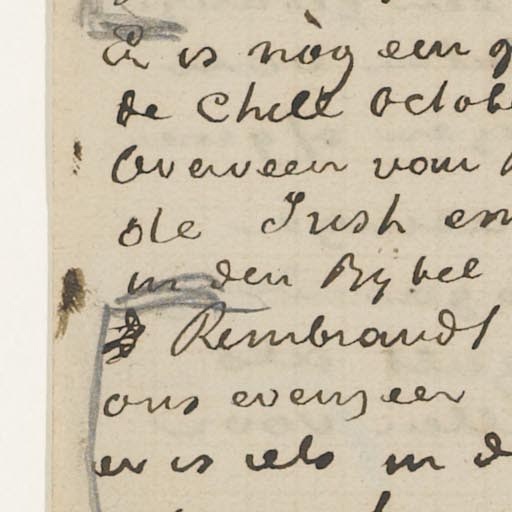 Er is nòg een
de Chill Octob
Overveen van
de Irish em
in den Bijbel
Rembrandt
ons evenzeer
er is iets in d